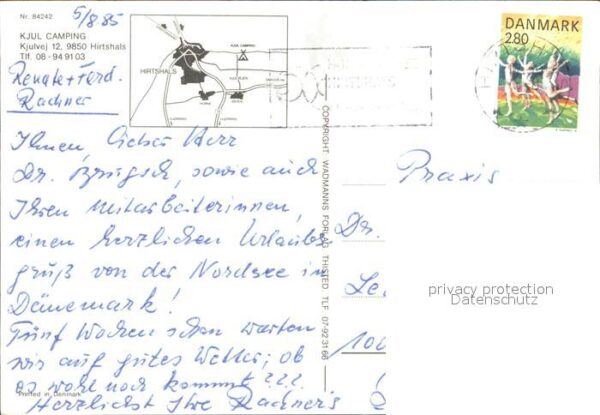 Nr. 84242
5/8.85
KJUL CAMPING
Kjulvej 12, 9850 Hirtshals
Tlf. 08 - 94 91 03
Renate + Ferd.
Rachner
HIRTSHALS
KJUL CAMPING
DANMARK
2.80
Ihnen, lieber Herr
Dr. Brugsch, sowie auch
Ihren Mitarbeiterinnen,
einen herzlichen Urlaubs-
gruß von der Nordsee in
Dänemark!
Fünf Wochen schon warten
wir auf gutes Wetter; ob
es wohl noch kommt???
Herzlichst Ihre Rachner's
Printed in Denmark
COPYRIGHT WADMANNS FORLAG THISTED TLF. 07-923166
Praxis
Dr.
Le
100
privacy protection
Datenschutz